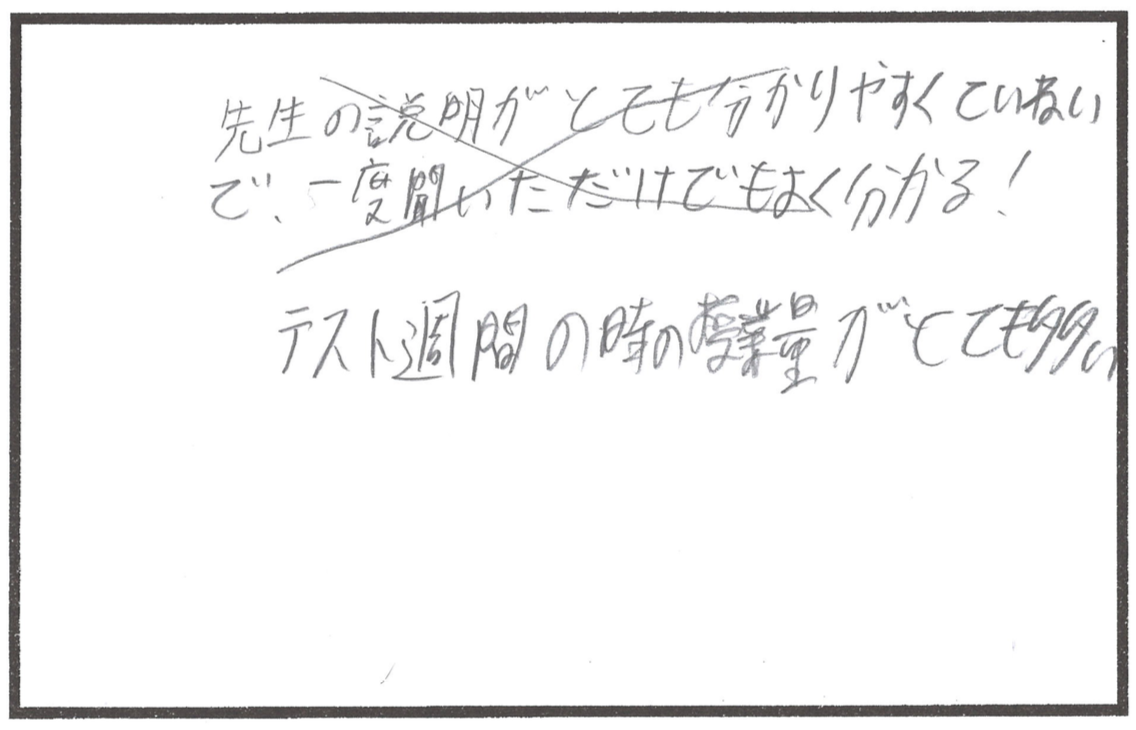 先生の説明がとても分かりやすくていねい
で、一度聞いただけでもよく分かる！
テスト週間の時の授業量がとても多い